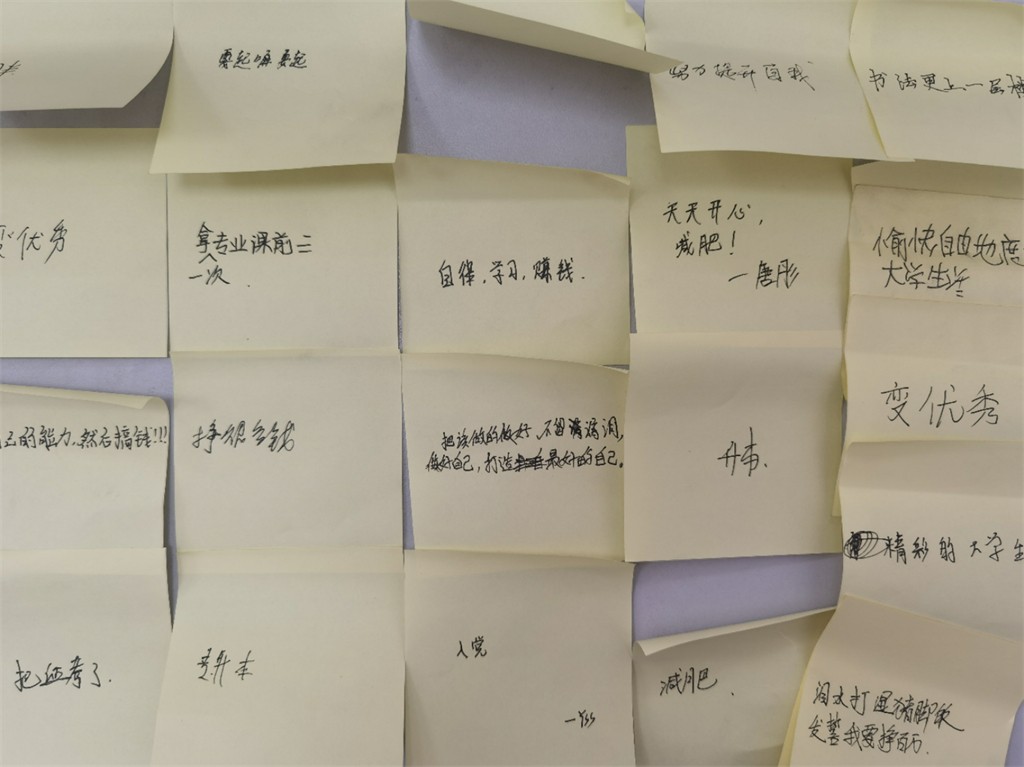 要起嘛要起
努力提升自我
书法更上一层
变优秀
拿专业课前三
一次
自律,学习,赚钱.
天天开心,
减肥!
—唐彤
愉快自由地度
大学生活
的能力,然后搞钱!!!
挣很多钱
把该做的做好,不留
做好自己,打造最好的自己。
升本.
变优秀
精彩的大学生
把证考了.
升本
入党
—Yss
减肥.
泪水打湿猪脚饭
发誓我要挣百万.